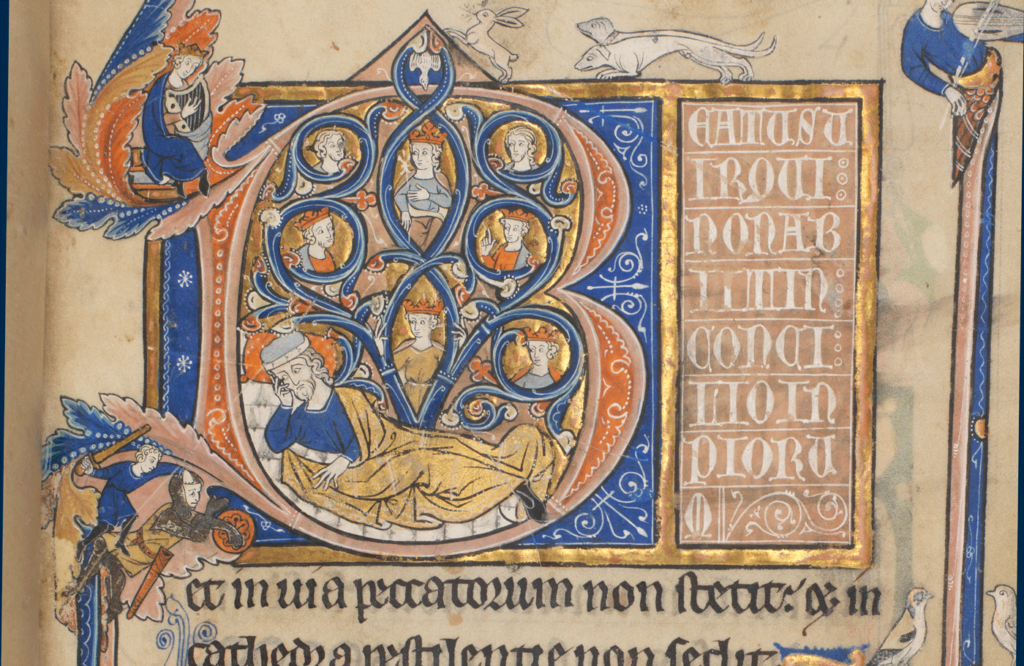 BEATUS U
IR QUI
NON AB
IIT IN
CONCI
LIO IN
PIORU
M
et in uia peccatorum non stetit: & in
cathedra pestilentie non sedit: